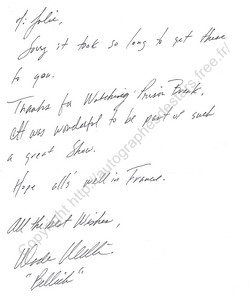 Hi Julie,
Sorry it took so long to get these
to you.
Thanks for Watching Prison Break.
It was wonderful to be part of such
a great Show.
Hope all's well in France.
All the best Wishes,
"Bellick"
Copyright http://autographesdestars.free.fr/